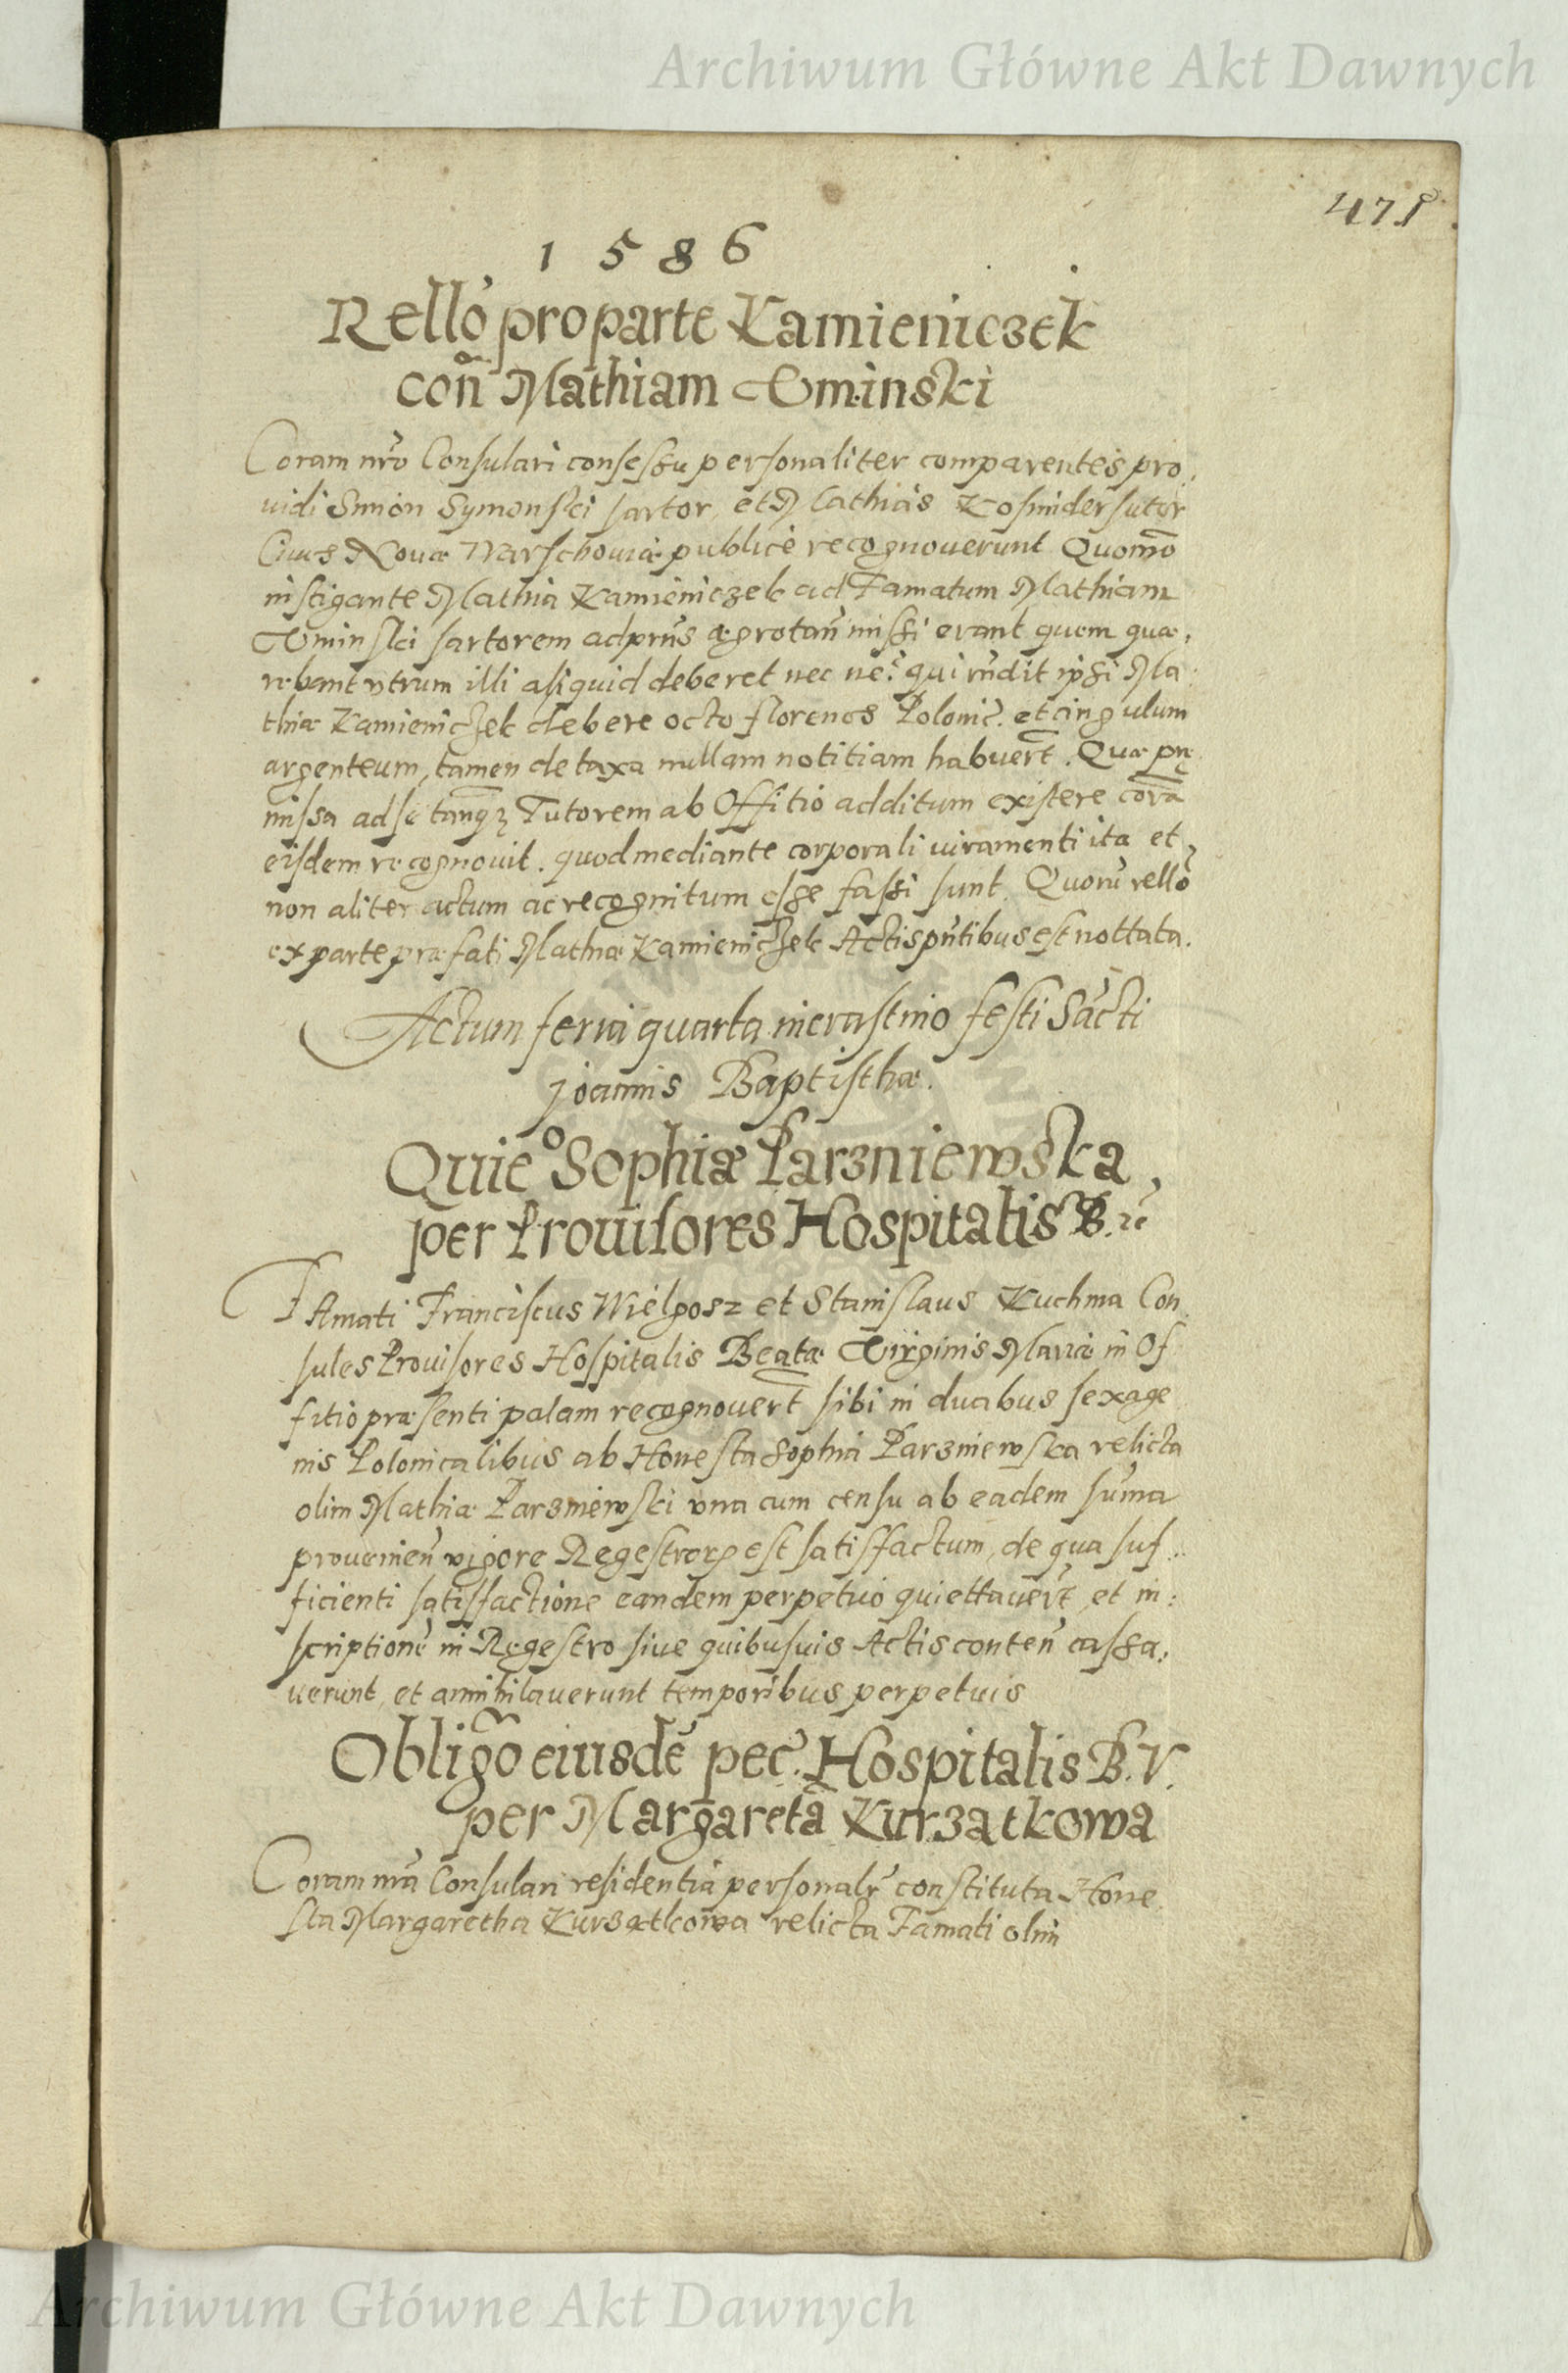 Archiwum Główne Akt Dawnych
471
1586
Rellõ pro parte Kamieniczek
coñ Mathiam Uminski
Coram nr̃o Consulari consessu personaliter comparentes pro,
uidi Simon Symonski sartor, et Mathias Kosmider sutor
Ciues Nouæ Warschouiæ publicè recognouerunt Quomõ
instigante Mathia Kamieniczek ad Famatum Mathiam
Uminski sartorem ad prñs ægrotañ missi erant quem quæ,
rebant vtrum illi aliquid deberet nec ne? qui rñdit ipsi Ma
thiæ Kamieniczek debere octo florenos Polonic̃. et cingulum
argenteum, tamen de taxa nullam notitiam habuer̃t. Quæ prę
missa ad se tanqȝ Tutorem ab Offitio additum existere corã
eisdem recognouit. quod mediante corporali iuramenti ita et
non aliter actum ac recognitum esse fassi sunt. Quorũ rellõ
ex parte præfati Mathiæ Kamieniczek Actis pñtibus est nottata.
Actum feria quarta in crastino festi Sãcti
Joannis Baptisthæ.
Quieᵒ Sophiæ Parzniewska
per Prouisores Hospitalis B.
FAmati Franciscus Wielgosz et Stanislaus Kuchma Con,
sules Prouisores Hospitalis Beatæ Virginis Mariæ in Of
fitio præsenti palam recognouer̃t sibi in duabus sexage
nis Polonicalibus ab Honesta Sophia Parzniewska relicta
olim Mathiæ Parzniewski vna cum censu ab eadem sum̃a
prouenieñ vigore Regestroꝝ est satisfactum, de qua suf
ficienti satisfactione eandem perpetuo quiettauer̃t, et in:
scriptionẽ in Regestro siue quibusuis Actis conteñ cassa,
uerunt, et annihilauerunt temporibus perpetuis
Obligõ eiusdẽ pec̃. Hospitalis B. V.
per Margaretã Kurzatkowa
Coram nr̃a Consulari residentia personalr̃ constituta Hone
sta Margaretha Kurzątkowa relicta Famati olim
Archiwum Główne Akt Dawnych